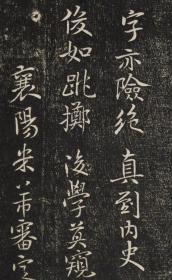 字亦險絶真到內史
俊如跳擲後學莫窺
襄陽米芾審定